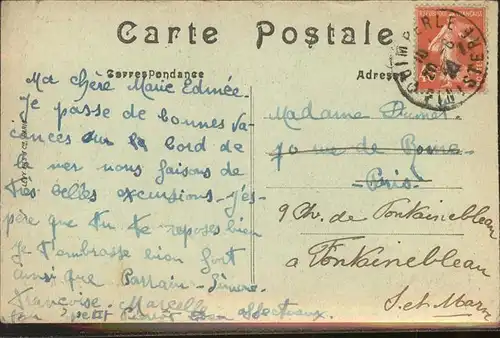 Carte Postale
Correspondance
Adresse
QUIMPERLÉ
FINISTÈRE
Ma chère Marie Edmée.
Je passe de bonnes va-
cances au bord de
la mer nous faisons de
très belles excursions. J'es-
père que tu te reposes bien
Je t'embrasse bien fort
ainsi que Parrain
Françoise. Marcelle
ton petit affectueux.
Madame
70 rue de Rome
Paris
9 Ch. de Fontainebleau
à Fontainebleau
S. et Marne